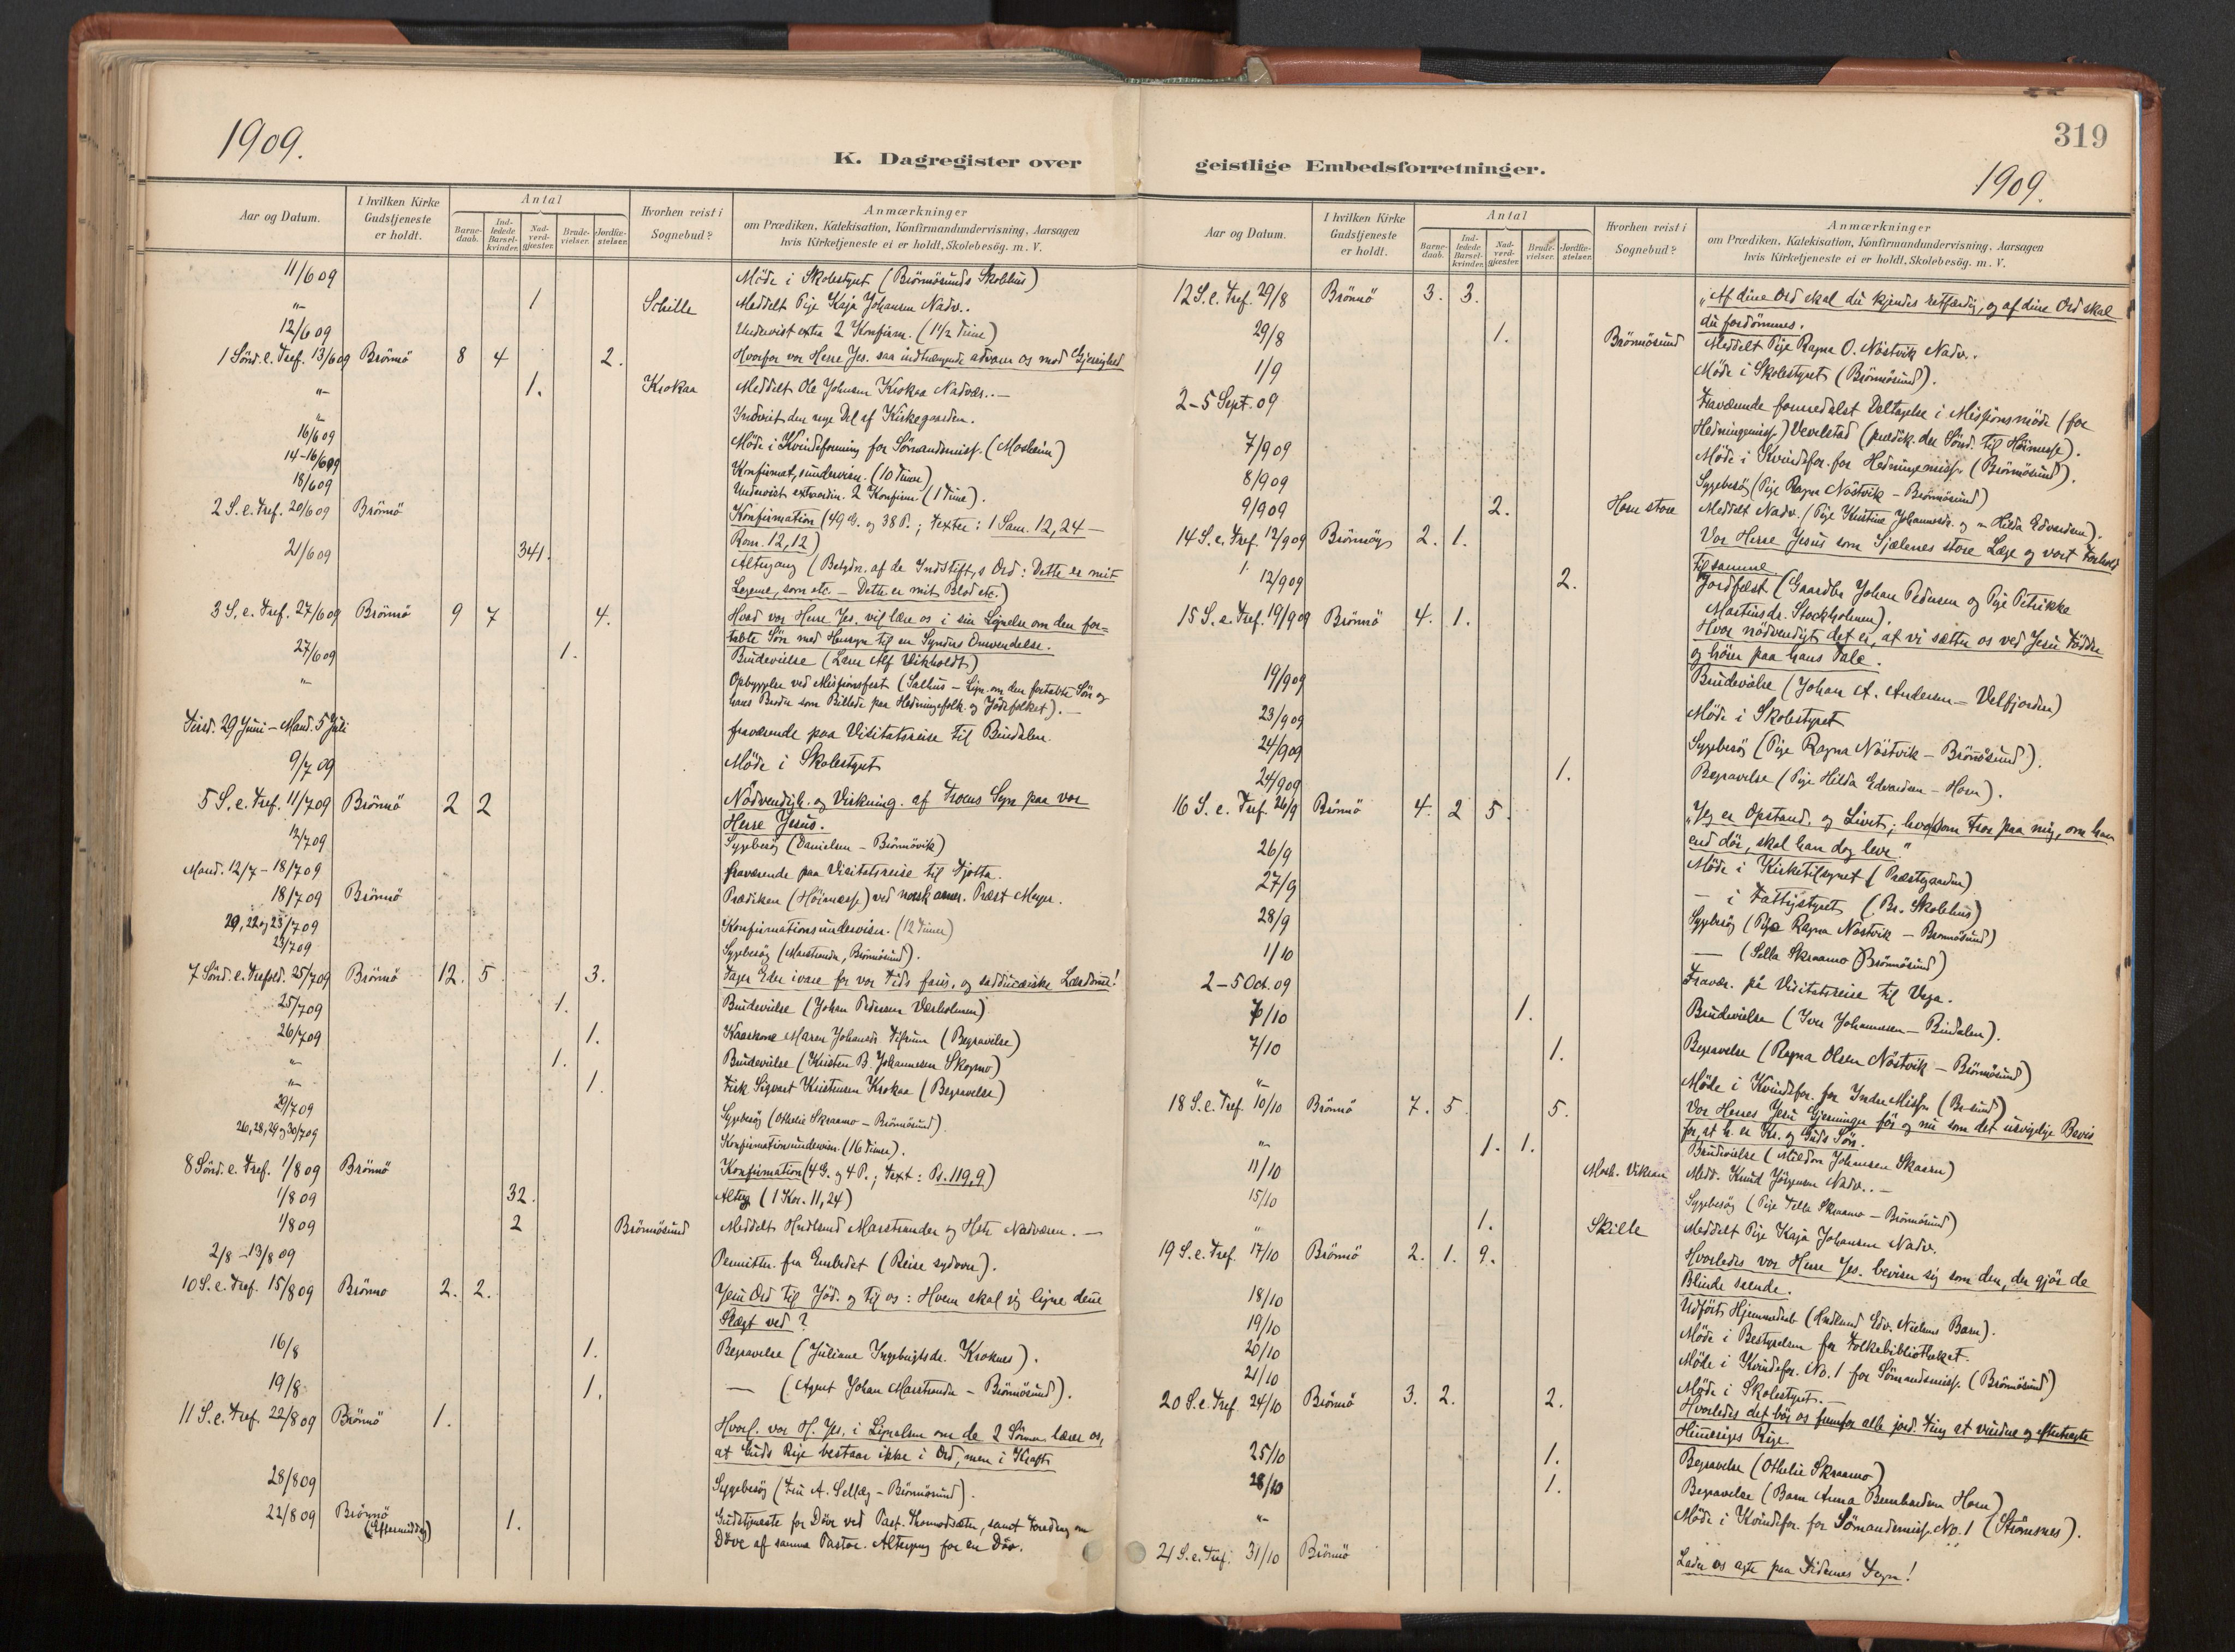 1909.
K. Dagregister over
Aar og Datum.
I hvilken Kirke Gudstjeneste er holdt.
Antal
Barne-daab.
Ind-ledede Barsel-kvinder.
Nad-verd-gjæster.
Brude-vielser.
Jordfæ-stelser.
Hvorhen reist i Sognebud?
Anmærkninger
om Prædiken, Katekisation, Konfirmandundervisning, Aarsagen
hvis Kirketjeneste ei er holdt, Skolebesög. m. V.
11/6 09 Möde i Skolestyret (Brönnösunds Skolehus)
"- 1 Schille Meddelt Pige Kaja Johansen Nadv..
12/6 09 Undervist extra 2 Konfirm. (1 1/2 Time)
1 Sönd. e. Tref. 13/6 09 Brönnö 8 4 2. Hvorfor vor Herre Jes. saa indtrængende advarer os mod Gjerrighed
"- 1. Krokaa Meddelt Ole Johnsen Krokaa Nadver.. —
"- Indviet den nye Del af Kirkegaarden.
16/6 09 Möde i Kvindeforening for Sömandsmiss. (Mosheim)
14-16/6 09 Konfirmat.sundervisn. (10 Timer)
18/6 09 Undervist extraordin. 2 Konfirm. (1 Time).
2 S. e. Tref. 20/6 09 Brönnö Konfirmation (49 G. og 38 P.; Texter: 1 Sam. 12,24 —
Rom. 12,12)
21/6 09 341. Altergang (Betydn. af de Indstift.s Ord: Dette er mit
Legeme, som etc. — Dette er mit Blod etc.)
3 S. e. Tref. 27/6 09 Brönnö 9 7 4. Hvad vor Herre Jes. vil lære os i sin Lignelse om den for=
tabte Sön med Hensyn til en Synders Omvendelse.
27/6 09 1. Brudevielse (Lærer Alf Wikholdt)
"- Opbyggelse ved Missionsfest (Salhus — Lign. om den fortabte Sön og
hans Broder som Billede paa Hedningefolk. og Jödefolket). —
Tirsd. 29 Juni — Mand. 5 Juli fraværende paa Visitatsreise til Bindalen.
9/7 09 Möde i Skolestyret
5 S. e. Tref. 11/7 09 Brönnö 2 2 Nödvendigh. og Virkning. af Troens Syn paa vor
Herre Jesus.
12/7 09 Sygebesög (Danielsen — Brönnövik)
Mand. 12/7 - 18/7 09 fraværende paa Visitatsreise til Tjotta..
18/7 09 Brönnö Prædiken (Höimesse) ved norsk amer. Præst Meyer.
20, 22 og 23/7 09 Konfirmationsundervisn. (12 Timer)
23/7 09 Sygebesög (Marstrander, Brönnösund).
7 Sönd. e. Trefold. 25/7 09 Brönnö 12. 5 3. Tager Eder ivare for vor Tids faris. og sadducæiske Lærdomme!
25/7 09 1. Brudevielse (Johan Pedersen Værholmen)
26/7 09 1. Kaarkone Maren Johansdr. Tilrum (Begravelse)
"- 1. Brudevielse (Kristen B. Johannesen Skogmo)
"- 1. Fisk. Sigvart Kristensen Krokaa (Begravelse)
29/7 09 Sygebesög (Othelie Skraamo — Brönnösund).
26, 28, 29 og 30/7 09 Konfirmationsundervisn. (16 Timer).
8 Sönd. e. Tref. 1/8 09 Brönnö Konfirmation (4 G. og 4 P.; Text: Ps. 119,9)
1/8 09 32. Alterg. (1 Kor. 11,24)
1/8 09 2 Brönnösund Meddelt Hndlsmd Marstrander og Hstr. Nadveren. —
2/8 - 13/8 09 Permitter. fra Embedet (Reise sydover).
10 S. e. Tref. 15/8 09 Brönnö 2. 2. Jesu Ord til Jöd. og til os: Hvem skal jeg ligne denne
Slægt ved?
16/8 1. Begravelse (Juliane Ingebrigtsdr. Kroknes).
19/8 1. — (Agent Johan Marstrander — Brönnösund).
11 S. e. Tref. 22/8 09 Brönnö 1. Hvorl. vor H. Jes. i Lignelsen om de 2 Sönner lærer os,
at Guds Rige bestaar ikke i Ord, men i Kraft
28/8 09 Sygebesög (Fru A. Sellæg — Brönnösund).
22/8 09 Brönnö (Eftermiddag) 1. Gudstjeneste for Döve ved Past. Thomodsæter, samt Foredrag om
Döve af samme Pastor. Altergang for en Döv.
319
geistlige Embedsforretninger.
1909.
Aar og Datum.
I hvilken Kirke Gudstjeneste er holdt.
Antal
Barne-daab.
Ind-ledede Barsel-kvinder.
Nad-verd-gjæster.
Brude-vielser.
Jordfæ-stelser.
Hvorhen reist i Sognebud?
Anmærkninger
om Prædiken, Katekisation, Konfirmandundervisning, Aarsagen
hvis Kirketjeneste ei er holdt, Skolebesög. m. V.
12 S. e. Tref. 29/8 Brönnö 3. 3. "Af dine Ord skal du kjendes retfærdig, og af dine Ord skal
du fordömmes.
29/8 1. Brönnösund Meddelt Pige Ragna O. Nöstvik Nadv..
1/9 Möde i Skolestyret (Brönnösund).
2-5 Sept. 09 Fraværende formedelst Deltagelse i Missionsmöde (for
Hedningemiss.) Vevelstad (prædik. der Sönd. til Höimesse).
7/9 09 Möde i Kvindefor. for Hedningemiss. (Brönnösund).
8/9 09 Sygebesög (Pige Ragna Nöstvik — Brönnösund)
9/9 09 2. Horn store Meddelt Nadv. (Pige Kristine Johannesdr. og "- Hilda Edvardsen).
14 S. e. Tref. 12/9 09 Brönnö 2. 1. Vor Herre Jesus som Sjælenes store Læge og vort Forhold
til samme.
12/9 09 2. Jordfæst (Gaardbr. Johan Pedersen og Pige Petrikke
Martinsdr. Stockholmen).
15 S. e. Tref. 19/9 09 Brönnö 4. 1. Hvor nödvendigt det er, at vi sætter os ved Jesu Födder
og hörer paa hans Tale.
19/9 09 Brudevielse (Johan A. Andersen — Velfjorden)
23/9 09 Möde i Skolestyret
24/9 09 Sygebesög (Pige Ragna Nöstvik — Brönnösund).
24/9 09 1. Begravelse (Pige Hilda Edvardsen — Horn).
16 S. e. Tref. 26/9 Brönnö 4. 2 5. "Jeg er Opstand. og Livet; hvo som tror paa mig, om han
end dör, skal han dog leve."
26/9 Möde i Kirketilsynet (Præstegaarden)
27/9 — i Fattigstyret (Br. Skolehus)
28/9 Sygebesög (Pige Ragna Nöstvik — Brönnösund)
1/10 — (Sella Skraamo Brönnösund)
2-5 Oct. 09 Fravær. på Visitatsreise til Vega.
6/10 1. Brudevielse (Iver Johannesen — Bindalen).
7/10 1. Begravelse (Ragna Olsen Nöstvik — Brönnösund)
"- Möde i Kvindefor. for Indre Missn. (Br-sund)
18 S. e. Tref. 10/10 Brönnö 7. 5 5. Vor Herres Jesu Gjerninger för og nu som det usvigelige Bevis
for, at h. er Kr. og Guds Sön.
"- 1. 1. Brudevielse (Johansen Skaaren)
11/10 Medd. Knud Jörgensen Nadv.. —
15/10 Sygebesög (Pige Skraamo — Brönnösund)
"- 1. Skille Meddelt Pige Kaja Johansen Nadv.
19 S. e. Tref. 17/10 Brönnö 2. 1. 9. Hvorledes vor Herre Jes. beviser sig som den, der gjör de
Blinde seende.
18/10 Udfört Hjemmedaab (Hndlsmd Edv. Nielsens Barn).
19/10 Möde i Bestyrelsen for Folkebibliotheket.
20/10 Möde i Kvindefor. No. 1 for Sömandsmiss. (Brönnösund)
21/10 Möde i Skolestyret. —
20 S. e. Tref. 24/10 Brönnö 3. 2. 2. Hvorledes det bör os fremfor alle jord. Ting at vurdere og eftertragte
Himmeriges Rige.
25/10 1. Begravelse (Othelie Skraamo)
28/10 1. Begravelse (Barn Anna Bernhardsen Horn)
"- Möde i Kvindefor. for Sömandsmiss. No. 1 (Strömsnes).
21 S. e. Tref. 31/10 Brönnö Lader os agte paa Tidernes Tegn!